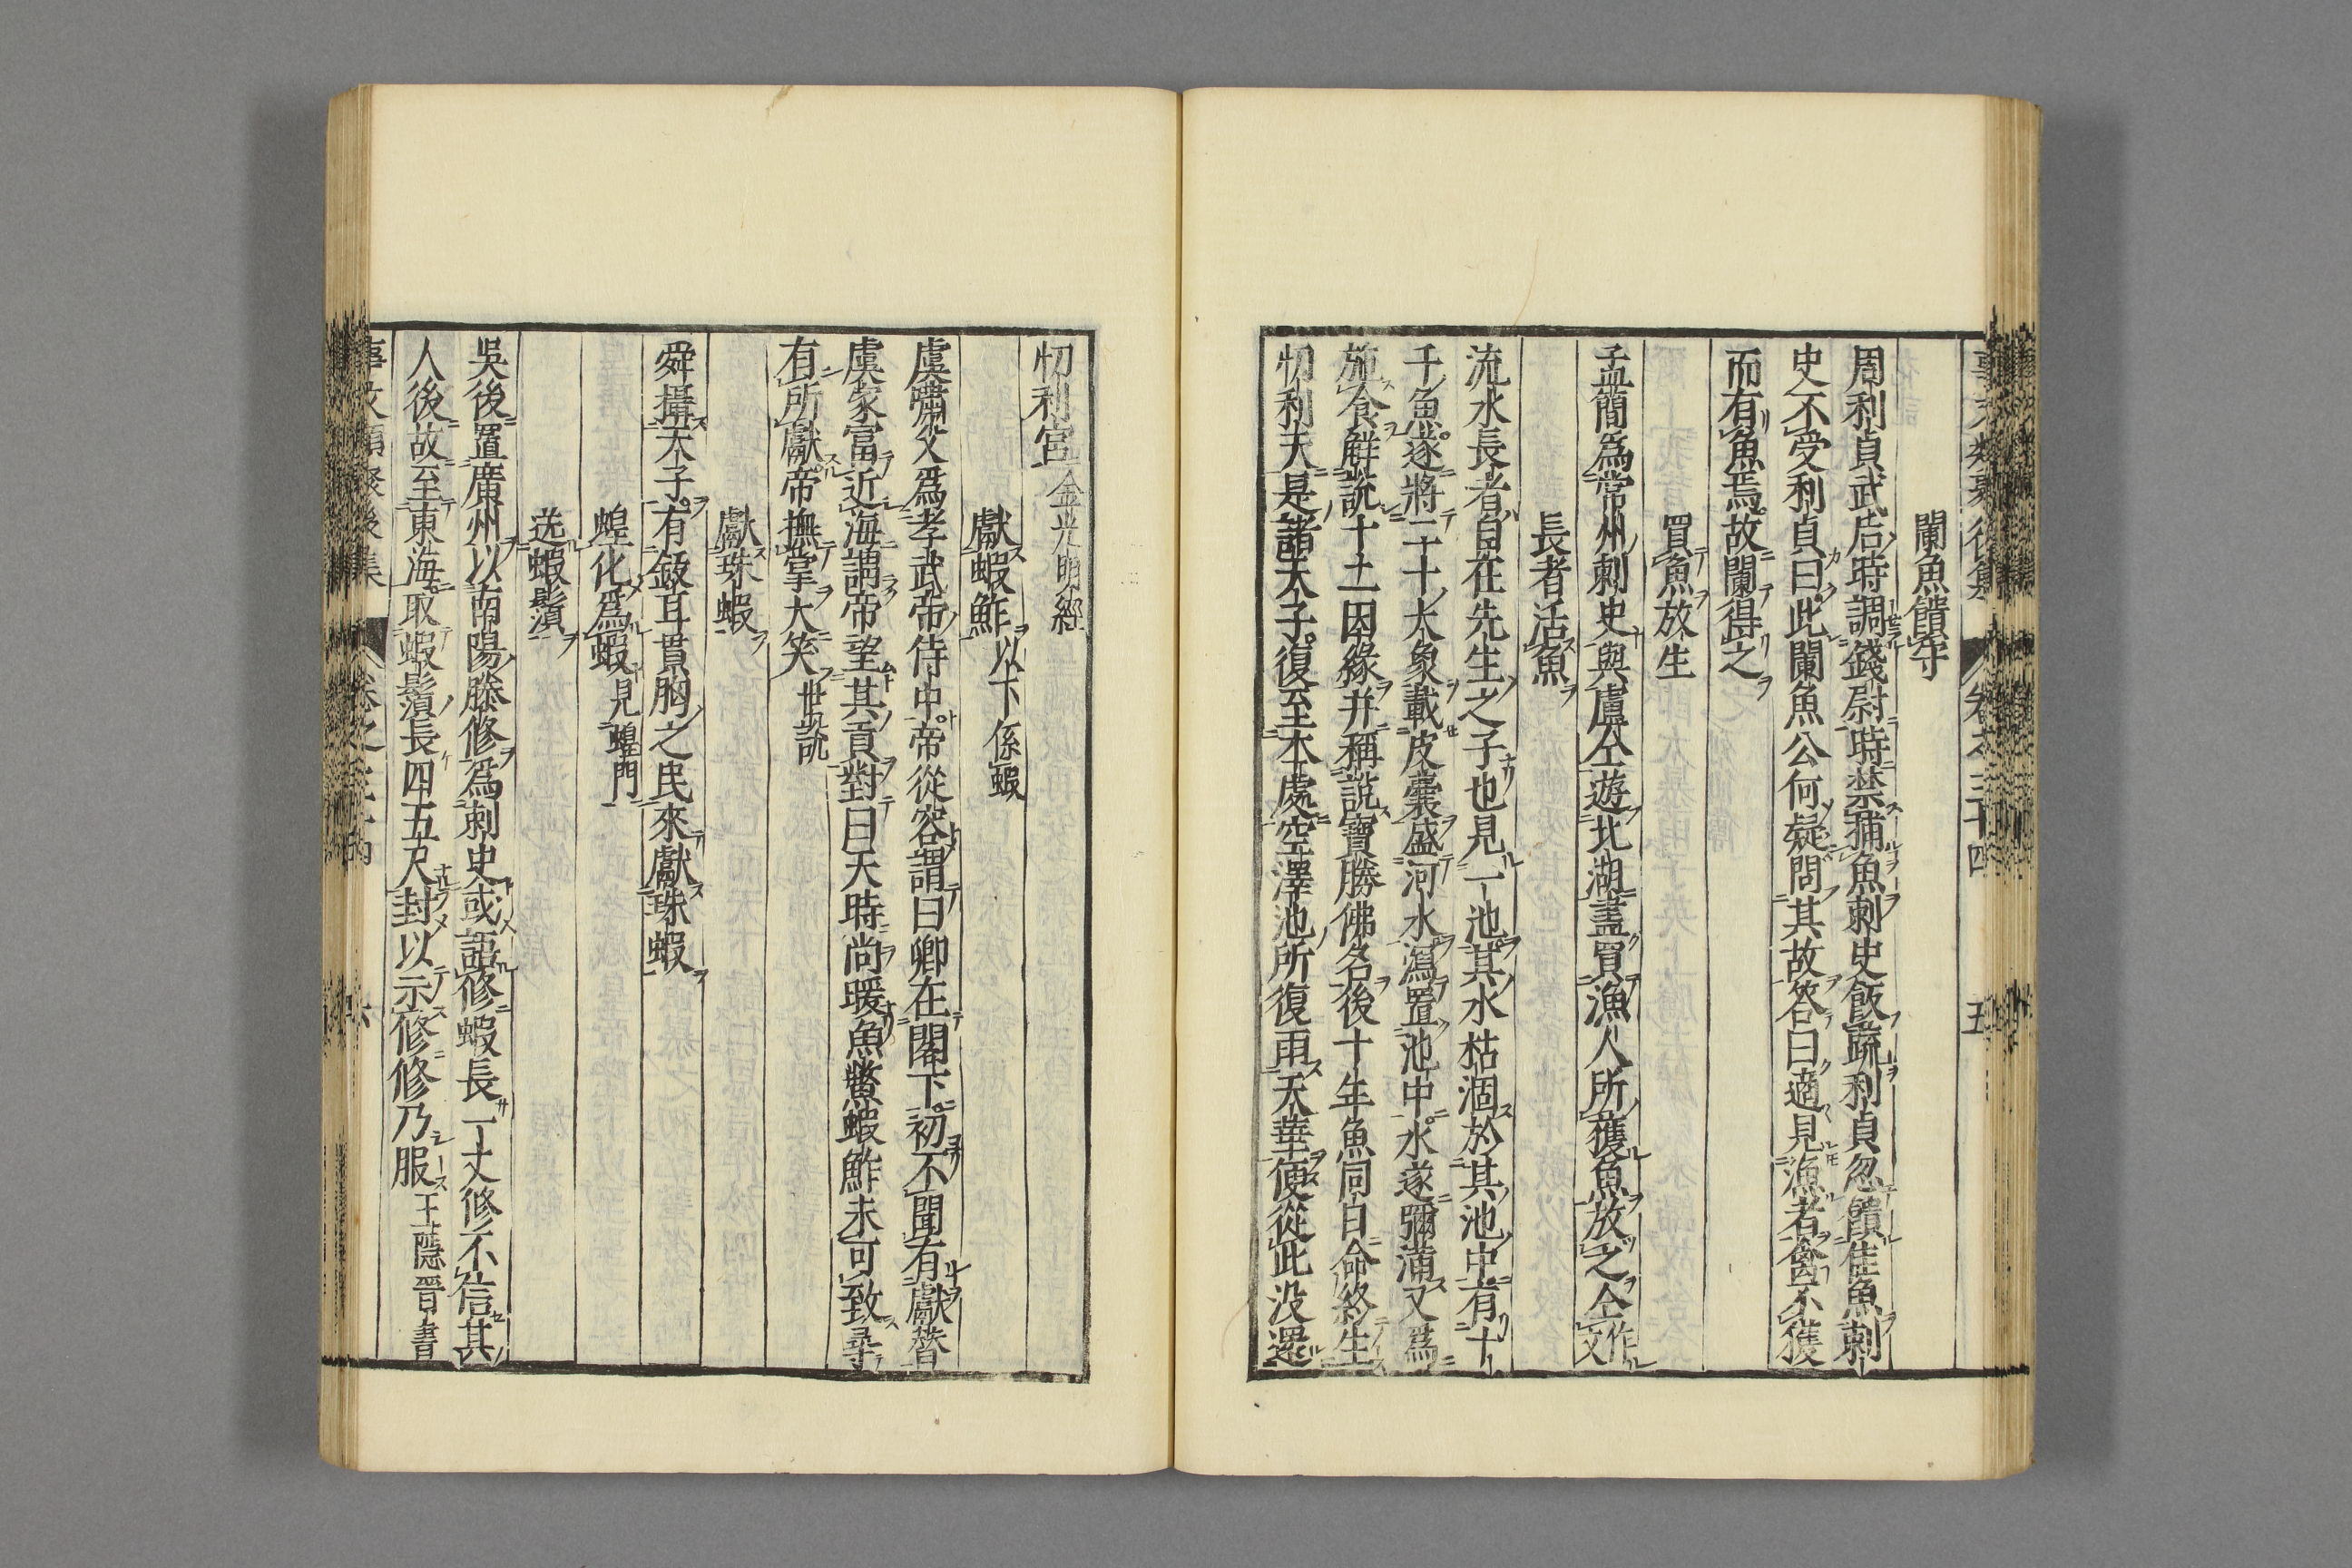 事文類聚後集 卷之三十四 五
闌魚饋守
周利貞武后時調錢尉時禁捕魚刺史飯蔬利貞忽饋佳魚刺
史不受利貞曰此闌魚公何疑問其故答曰適見漁者禽不獲
而有魚焉故闌得之
買魚放生
孟簡爲常州刺史與盧仝遊北湖盡買漁人所獲魚放之仝作文
長者活魚
流水長者自在先生之子也見一池其水枯涸於其池中有十
千魚遂將二十大象載皮囊盛河水瀉置池中水遂彌滿又爲
施食解說十二因緣并稱說寶勝佛名後十年魚同日命終生
忉利天是諸天子復至本處空澤池所復雨天華便從此没還
忉利宮金光明經
獻蝦鮓以下係蝦
虞嘯父爲孝武帝侍中帝從容謂曰卿在閣下初不聞有獻替
虞家富近海謂帝望其貢對曰天時尚暖魚鱉蝦鮓未可致尋
有所獻帝撫掌大笑世說
獻珠蝦
舜攝天子有㪍耳貫胸之民來獻珠蝦
蝗化爲蝦見蝗門
送蝦鬚
吳後置廣州以南陽滕修爲刺史或語修蝦長一丈修不信其
人後故至東海取蝦鬚長四五尺封以示修修乃服王隱晉書
事文類聚後集 卷之三十四 六